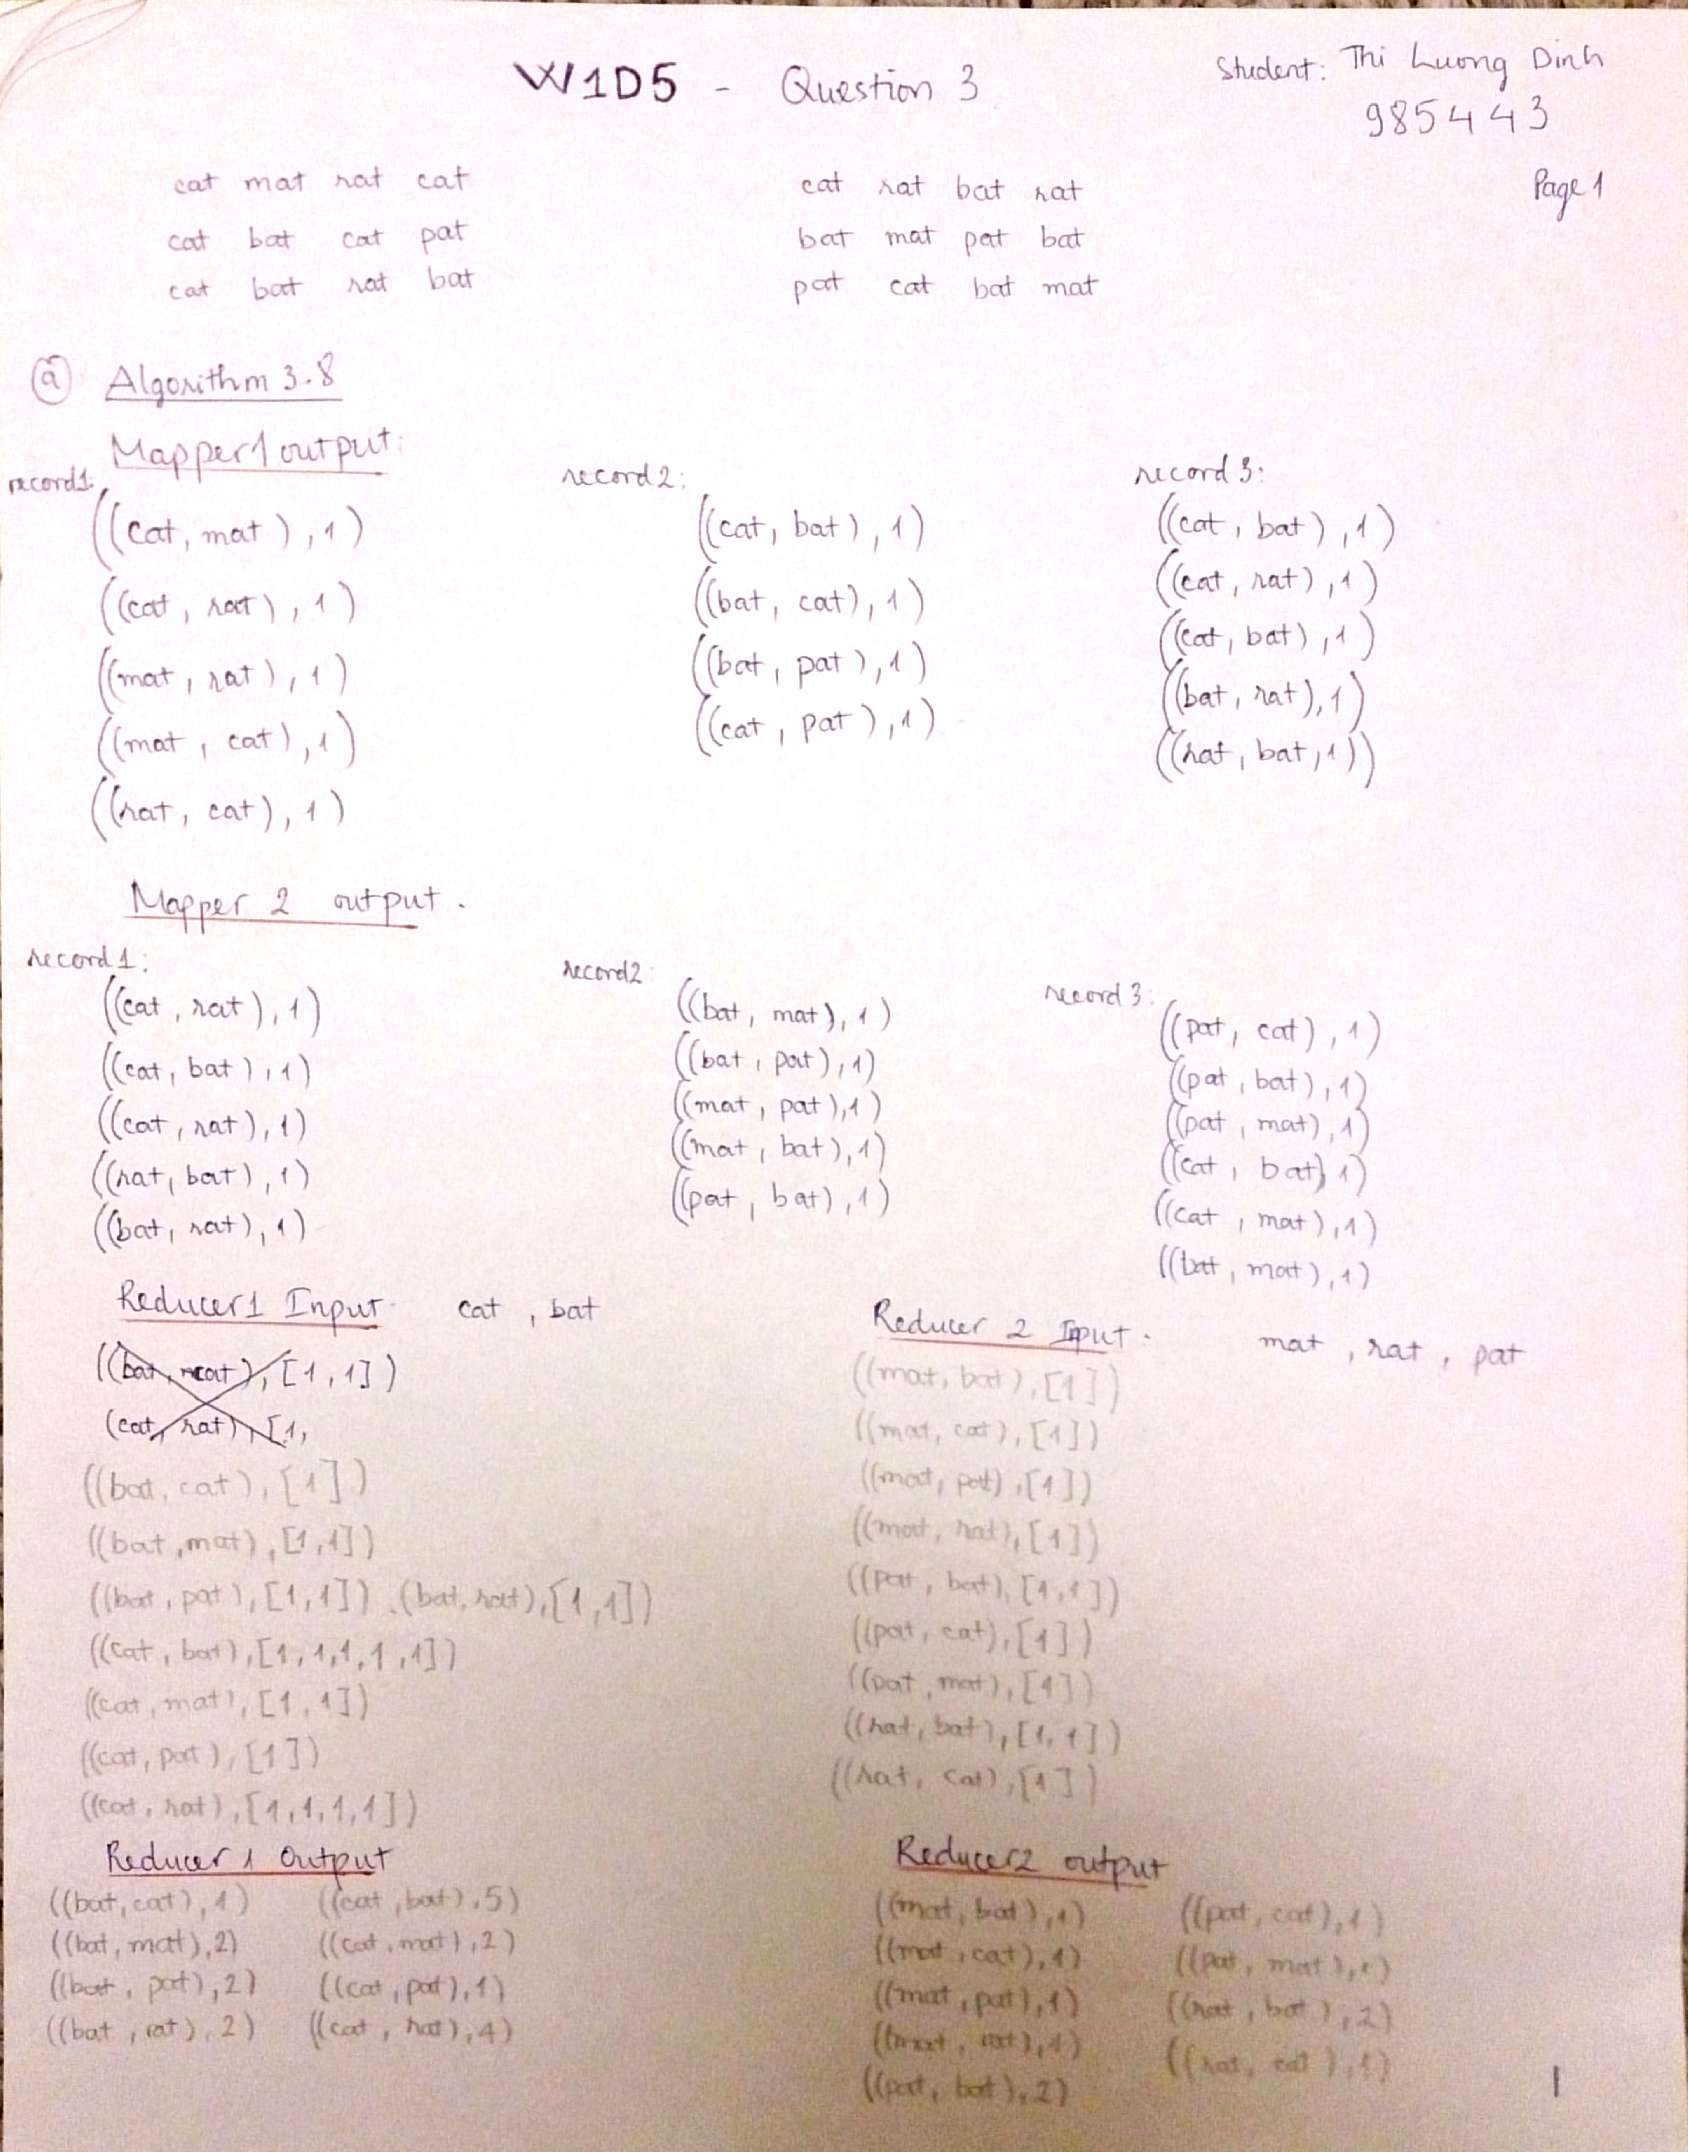 W1D5 - Question 3
Student: Thi Luong Dinh
985443
Page 1
cat mat rat cat
cat bat cat pat
cat bat rat bat
cat rat bat rat
bat mat pat bat
pat cat bat mat
(a) Algorithm 3.8
Mapper 1 output:
record1:
((cat, mat), 1)
((cat, rat), 1)
((mat, rat), 1)
((mat, cat), 1)
((rat, cat), 1)
record2:
((cat, bat), 1)
((bat, cat), 1)
((bat, pat), 1)
((cat, pat), 1)
record3:
((cat, bat), 1)
((cat, rat), 1)
((cat, bat), 1)
((bat, rat), 1)
((rat, bat, 1))
Mapper 2 output.
record1:
((cat, rat), 1)
((cat, bat), 1)
((cat, rat), 1)
((rat, bat), 1)
((bat, rat), 1)
record2:
((bat, mat), 1)
((bat, pat), 1)
((mat, pat), 1)
((mat, bat), 1)
((pat, bat), 1)
record3:
((pat, cat), 1)
((pat, bat), 1)
((pat, mat), 1)
((cat, bat), 1)
((cat, mat), 1)
((bat, mat), 1)
Reducer1 Input. cat, bat
((bat, mat), [1, 1])
(cat, rat), [1,
((bat, cat), [1])
((bat, mat), [1, 1])
((bat, pat), [1, 1]) (bat, rat), [1, 1])
((cat, bat), [1, 1, 1, 1, 1])
((cat, mat), [1, 1])
((cat, pat), [1])
((cat, rat), [1, 1, 1, 1])
Reducer 2 Input. mat, rat, pat
((mat, bat), [1])
((mat, cat), [1])
((mat, pat), [1])
((mat, rat), [1])
((pat, bat), [1, 1])
((pat, cat), [1])
((pat, mat), [1])
((rat, bat), [1, 1])
((rat, cat), [1])
Reducer 1 Output
((bat, cat), 1) ((cat, bat), 5)
((bat, mat), 2) ((cat, mat), 2)
((bat, pat), 2) ((cat, pat), 1)
((bat, rat), 2) ((cat, rat), 4)
Reducer2 output
((mat, bat), 1) ((pat, cat), 1)
((mat, cat), 1) ((pat, mat), 1)
((mat, pat), 1) ((rat, bat), 2)
((mat, rat), 1) ((rat, cat), 1)
((pat, bat), 2)
1